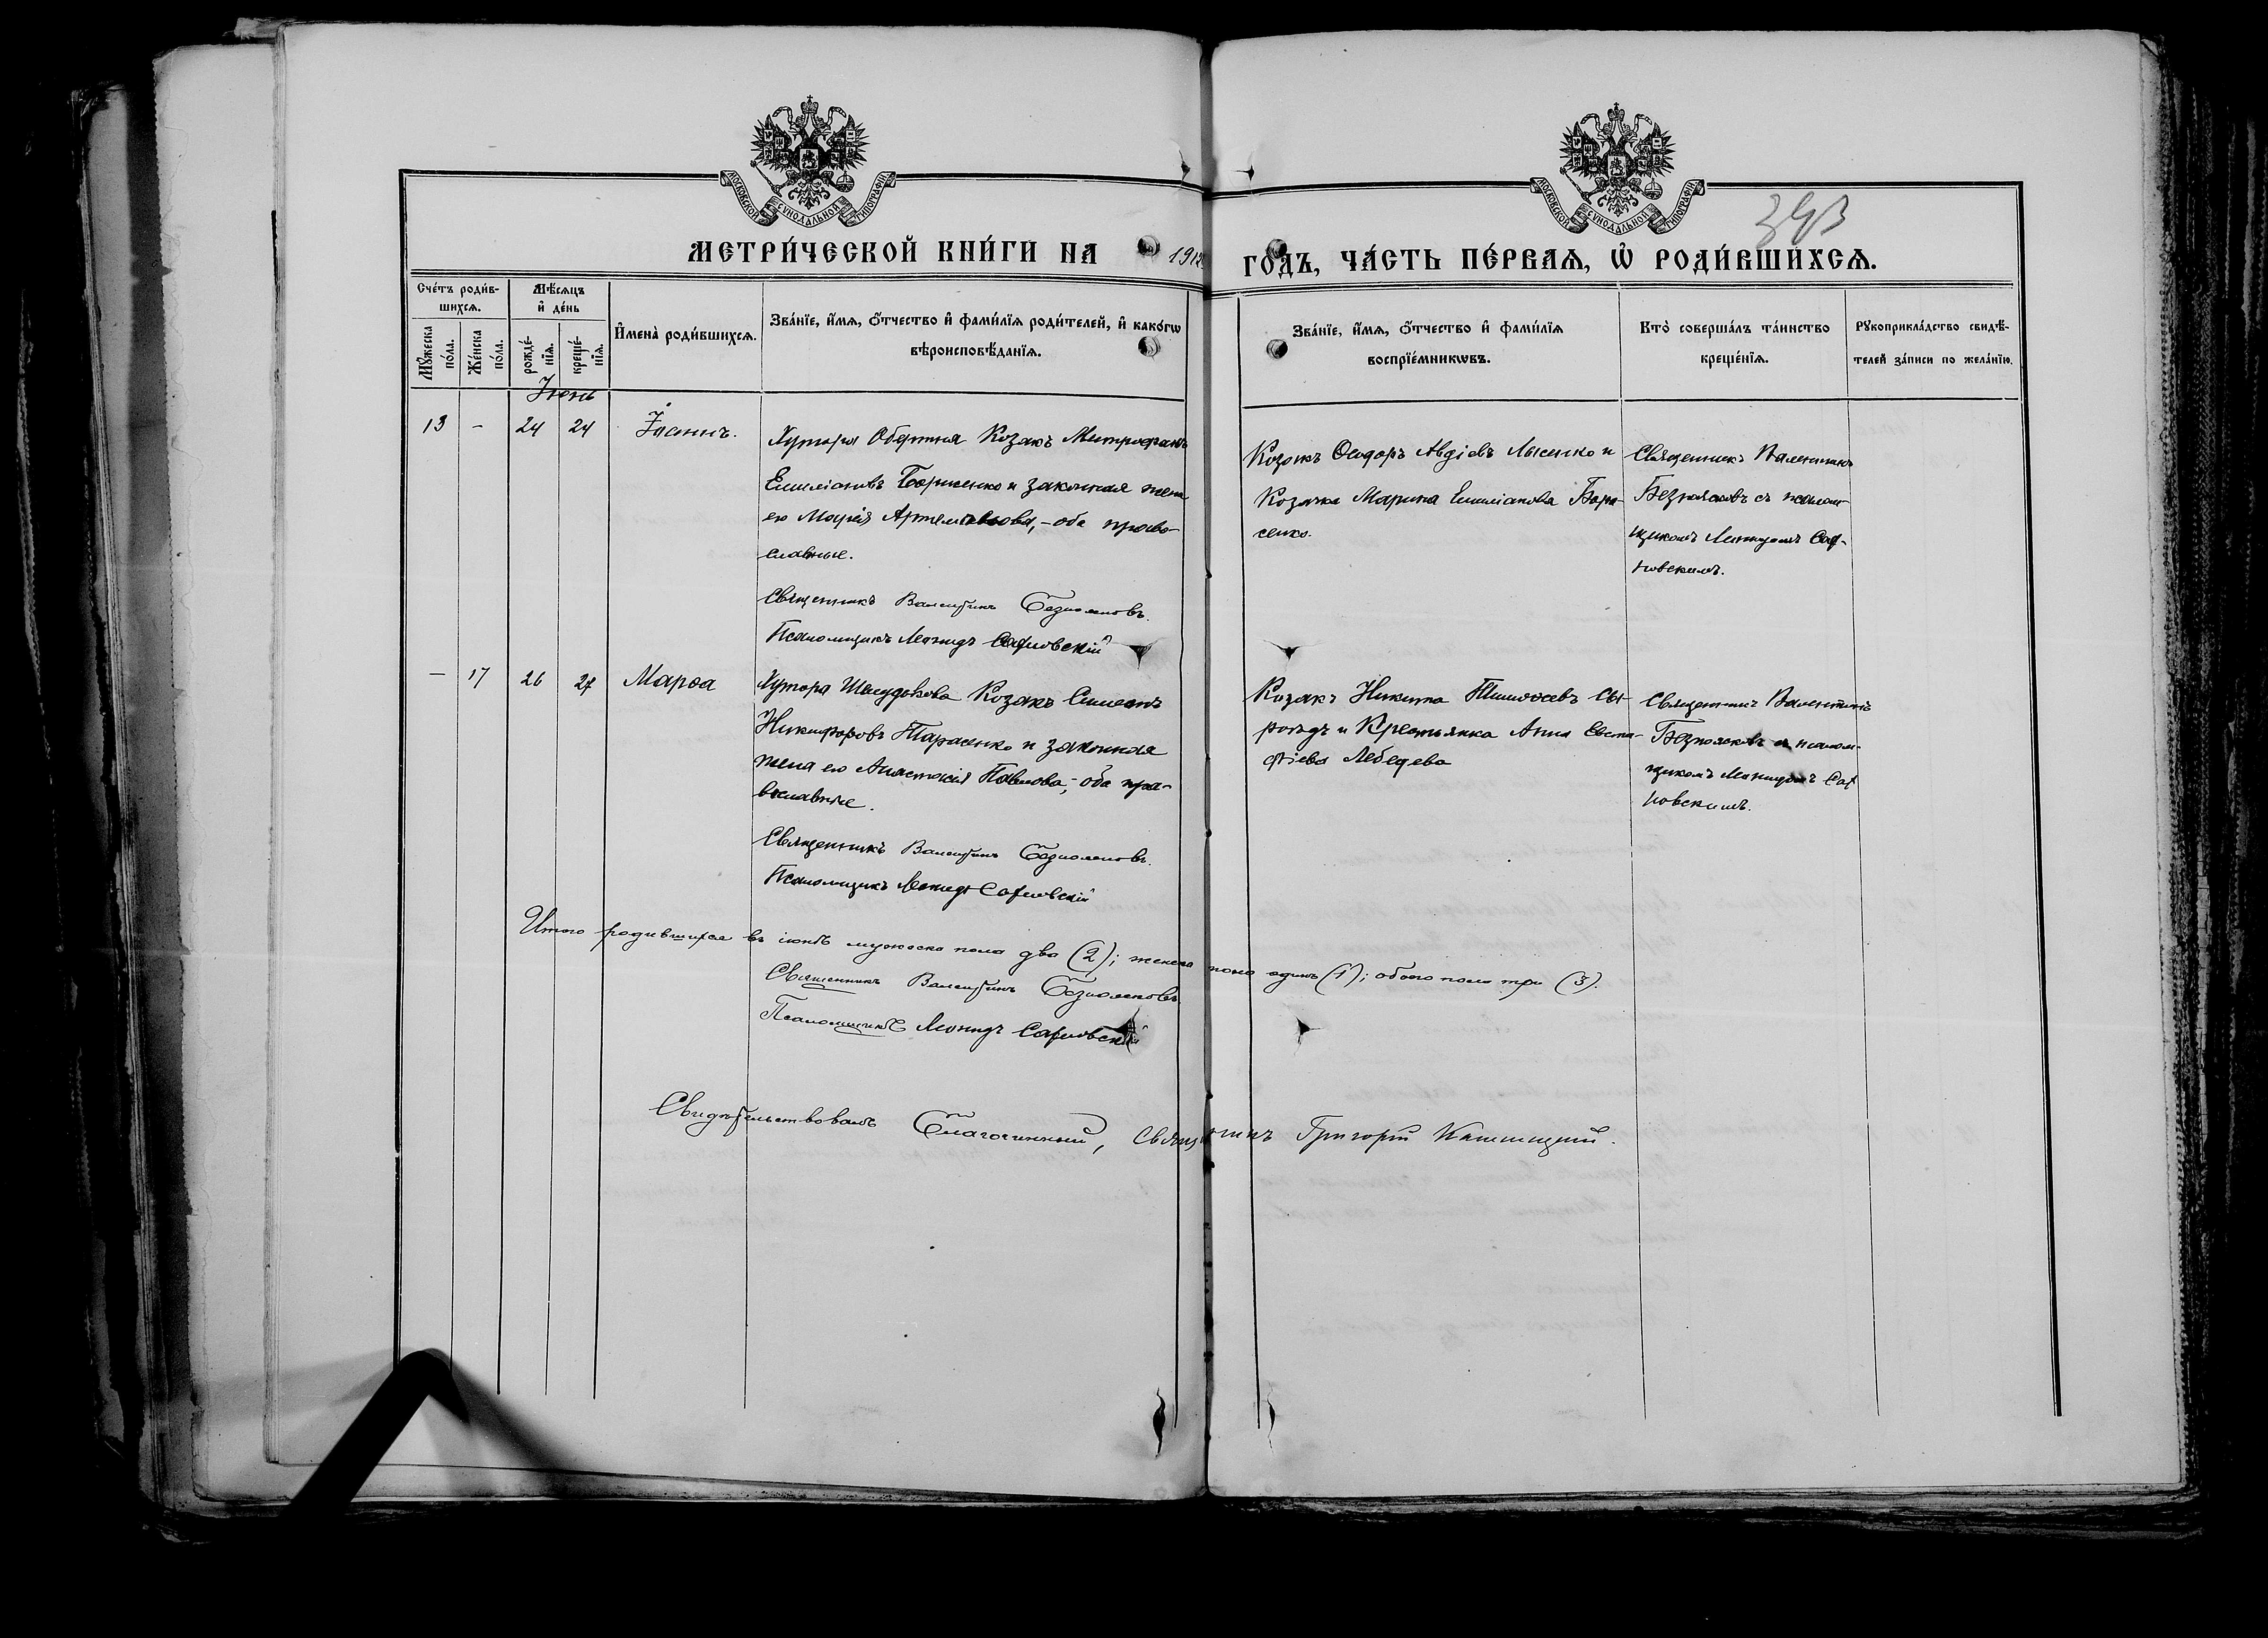 МОСКОВСКОЙ СѴНОДАЛЬНОЙ ТИПОГРАФІИ
МОСКОВСКОЙ СѴНОДАЛЬНОЙ ТИПОГРАФІИ
МЕТРИ́ЧЕСКОЙ КНИ́ГИ НА 1912 ГОДЪ, ЧА́СТЬ ПЕ́РВАЯ, Ѡ РОДИ́ВШИХСЯ.
Сче́тъ роди́в-
шихся.
Мꙋ́жеска по́ла.
Же́нска по́ла.
Мѣ́сяцъ и де́нь
рожде́-
нїя.
креще́-
нїя.
Имена̀ роди́вшихся.
Зва́нїе, и́мя, о́тчество и фами́лїя роди́телей, и како́гѡ
вѣроисповѣ́данїя.
Зва́нїе, и́мя, о́тчество и фами́лїя
воспрїе́мникѡвъ.
Кто̀ соверша́лъ та́инство
креще́нїя.
Рꙋкоприкла́дство свидѣ́-
телей за́писи по жела́нїю.
Іюнь
13 - 24 24 Іоаннъ.
Хутора Козакъ Митрофанъ
Емиліановъ Борисенко и законная жена
его Марія, - оба право-
славные.
Священникъ Валентинъ
Псаломщикъ Леонидъ Сафновскій
Козакъ Ѳеодоръ Авдіевъ Лысенко и
Козачка Марина Емиліанова Бори-
сенко.
Священникъ Валентинъ
съ псалом-
щикомъ Леонидомъ Саф-
новскимъ.
— 17 26 27 Марѳа
Хутора Козакъ Симеонъ
Никифоровъ Тарасенко и законная
жена его Анастасія Павлова, - оба пра-
вославные.
Священникъ Валентинъ
Псаломщикъ Леонидъ Сафновскій
Козакъ Никита Тимоѳеевъ Сы-
роѣдъ и Крестьянка Анна Евста-
фіева Лебедева
Священникъ Валентинъ
и псалом-
щикомъ Леонидомъ Саф
новскимъ.
Итого родившихся въ іюнѣ мужеска пола два (2); женска пола одинъ (1); обоего пола три (3).
Священникъ Валентинъ
Псаломщикъ Леонидъ Сафновскій
Свидѣтельствовалъ Благочинный, Священникъ Григорій